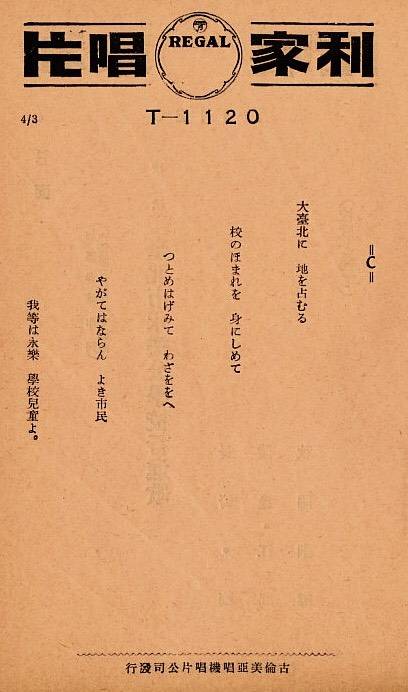 利家唱片
REGAL
4/3
T-1120
=C=
大臺北に　地を占むる
校のほまれを　身にしめて
つとめはげみて　わざををへ
やがてはならん　よき市民
我等は永樂　學校兒童よ。
古倫美亞唱機唱片公司發行